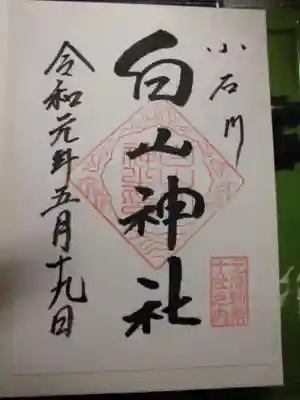 小石川
白山神社
令和元年五月十九日